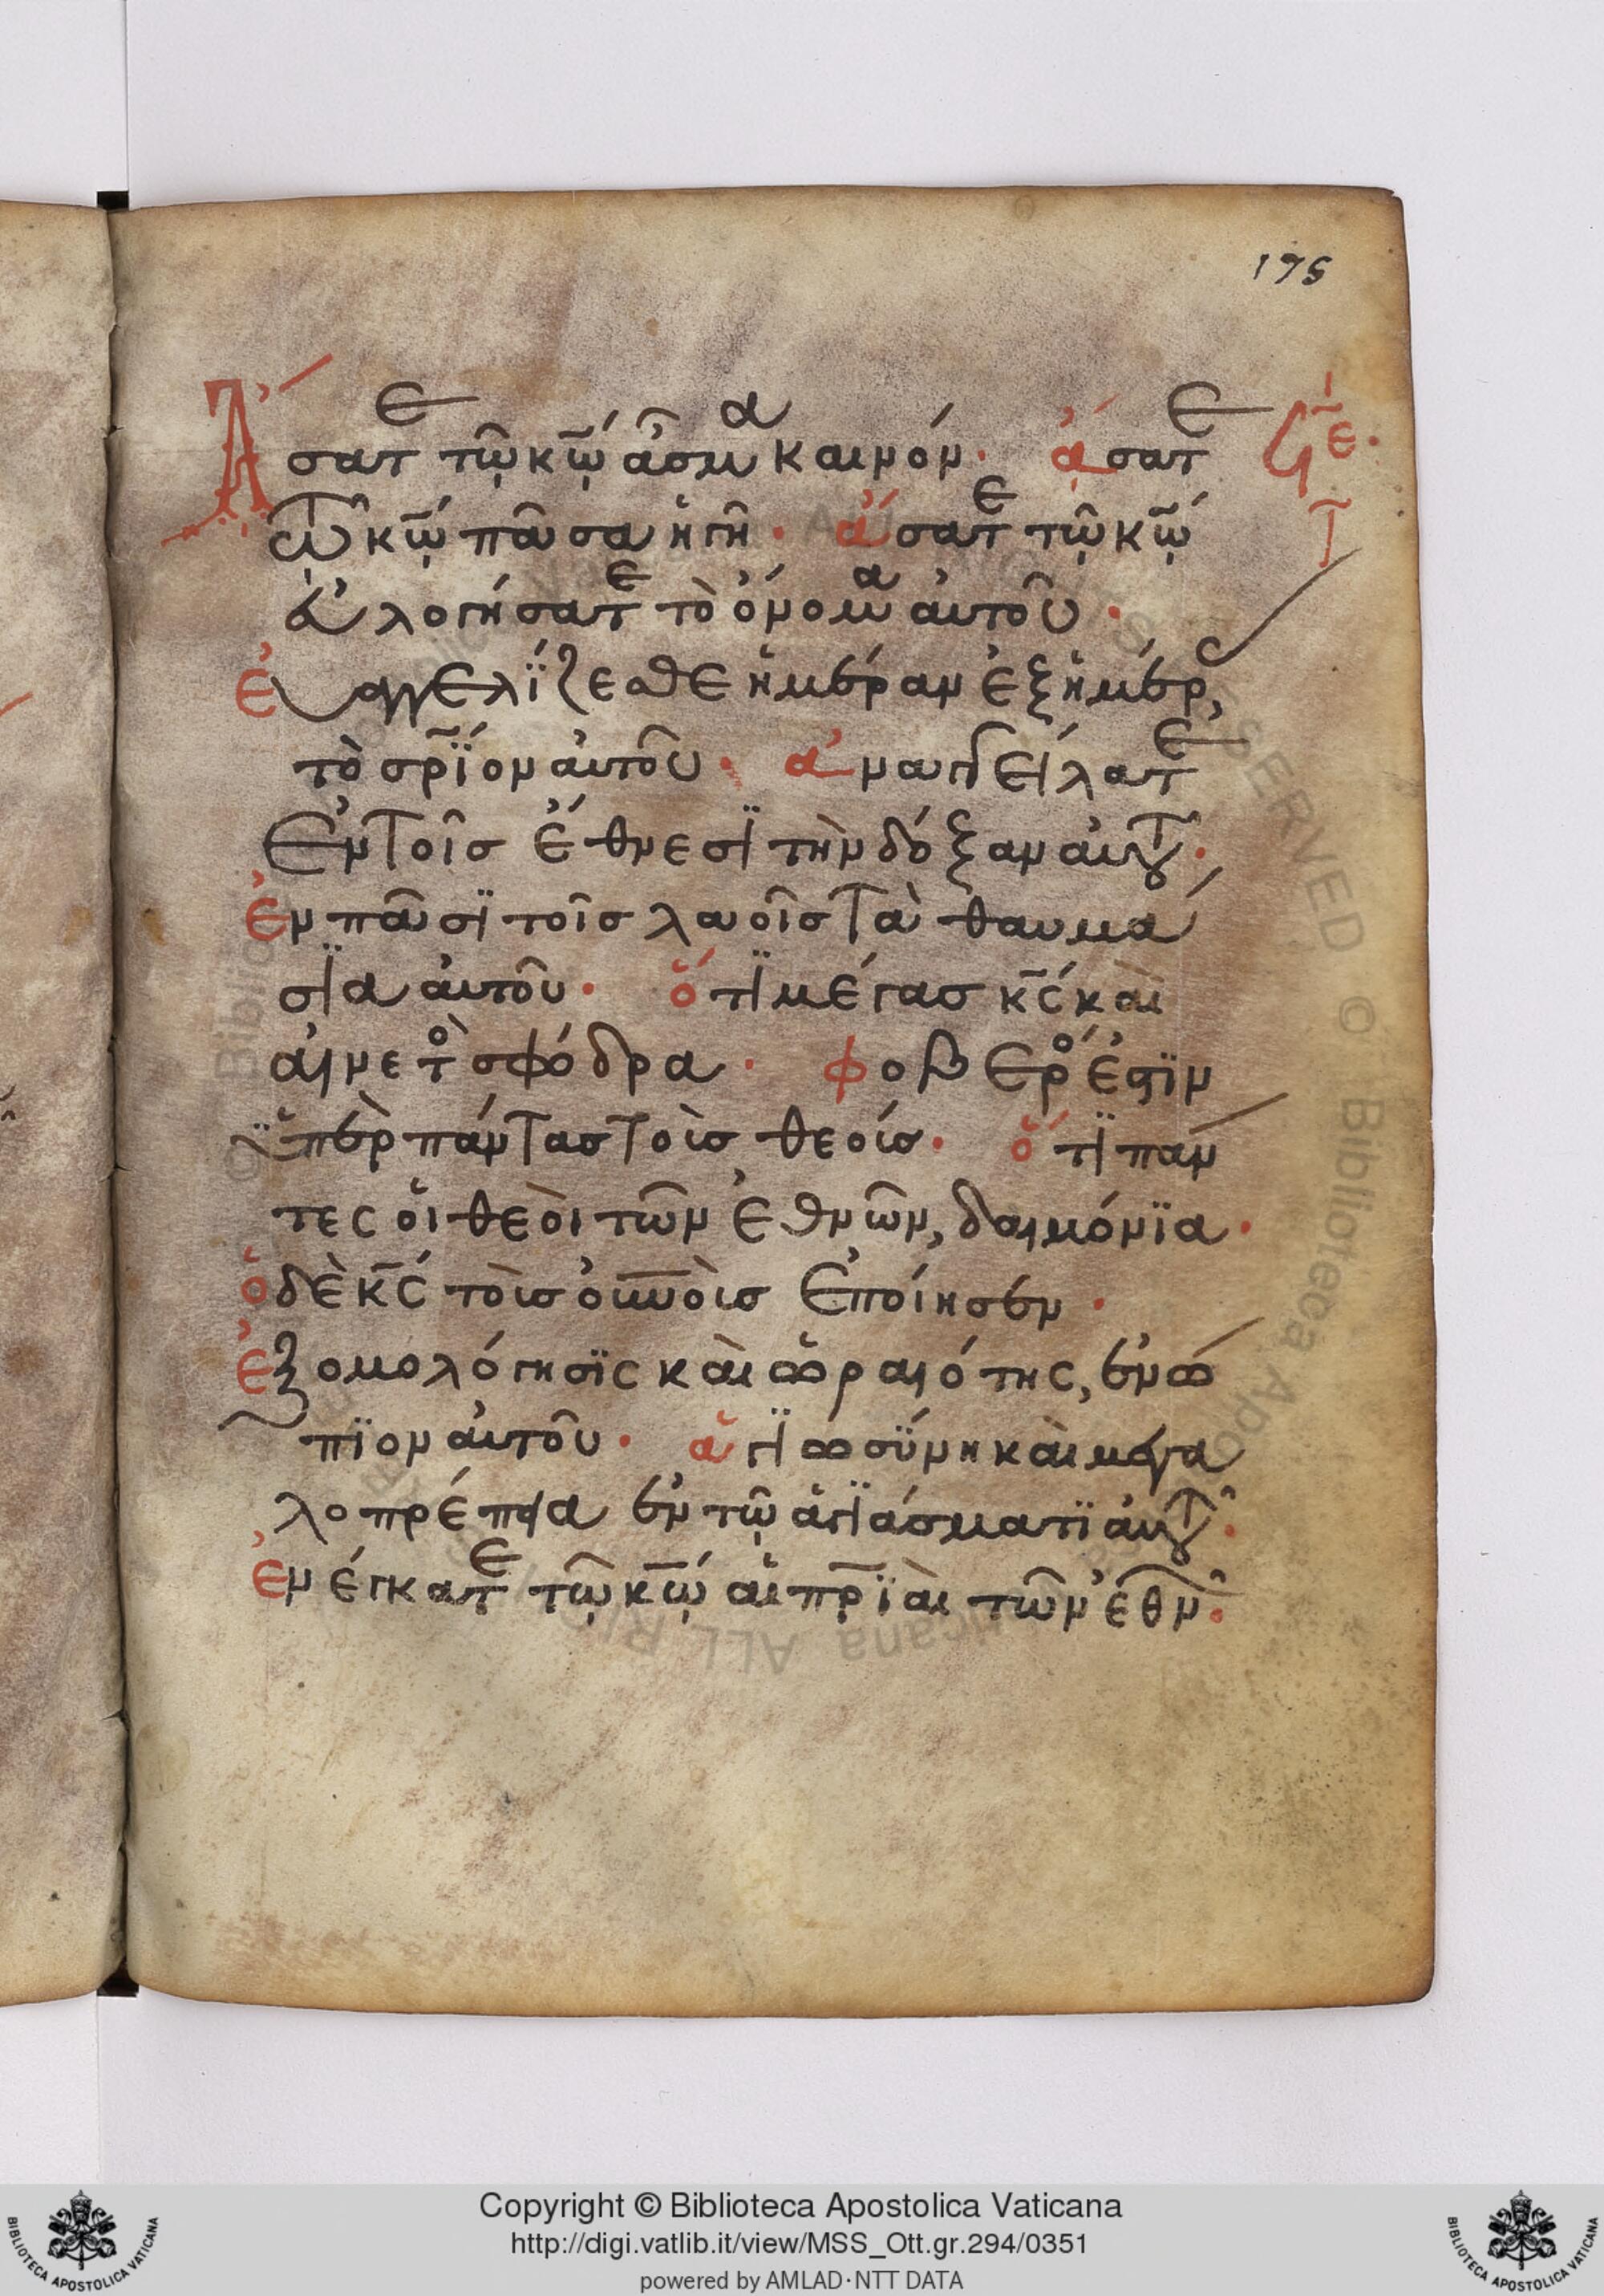 175
Ἄσατε τῶ κῶ ἄσμα καινόν· ἄσατε
τῶ κῶ πᾶσα ἡ γῆ· ἄσατε τῶ κῶ
εὐλογήσατε τὸ ὄνομα αὐτοῦ·
Ἐυαγγελίζεσθε ἡμέραν ἐξ ἡμέρ,
τὸ σρΐον αὐτοῦ· ἀναγγείλατε
ἐν τοῖσ ἔθνεσϊ τὴν δόξαν αὐτοῦ·
Ἐν πᾶσϊ τοῖσ λαοῖσ τὰ θαυμά
σϊα αὐτοῦ· ὅτϊ μέγασ κς καὶ
αἰνετὸσ σφόδρα· φοβερός ἐστϊν
ὑπὲρ πάντασ τοὺσ θεούσ· ὅτϊ πάν
τες οἱ θεοὶ τῶν ἐθνῶν, δαιμόνϊα·
ὁ δὲ κς τοὺσ οὐνοὺσ ἐποίησεν·
Ἐξομολόγησϊς καὶ ὡραιότης, ἐνώ
πϊον αὐτοῦ· ἁγϊωσύνη καὶ μεγα
λοπρέπεια ἐν τῶ ἁγϊάσματϊ αὐτοῦ·
Ἐνέγκατε τῶ κῶ αἱ πρϊαὶ τῶν ἐθν·
Copyright © Biblioteca Apostolica Vaticana
http://digi.vatlib.it/view/MSS_Ott.gr.294/0351
powered by AMLAD·NTT DATA
BIBLIOTECA APOSTOLICA VATICANA
BIBLIOTECA APOSTOLICA VATICANA